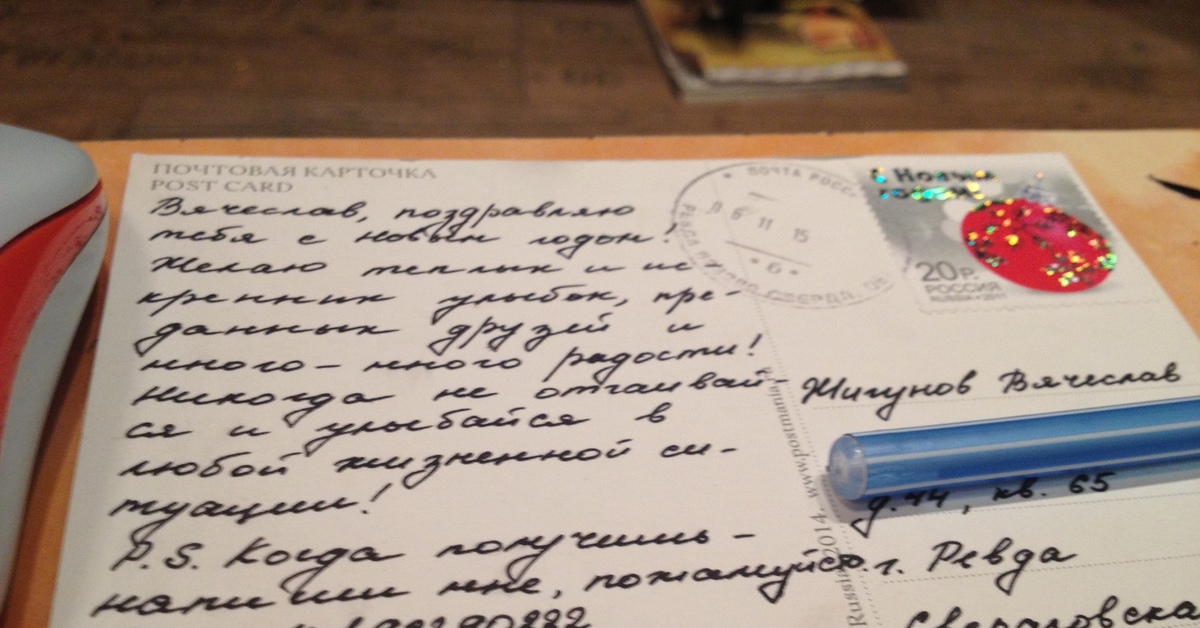 ПОЧТОВАЯ КАРТОЧКА
POST CARD
Вячеслав, поздравляю
тебя с новым годом!
Желаю теплых и ис
кренних улыбок, пре-
данных друзей и
много-много радости!
Никогда не отчаивай
ся и улыбайся в
любой жизненной си-
туации!
P.S. Когда получишь -
напиши мне, пожалуйста.
ПОЧТА РОССИ
11 15
6
С Новым
годом!
20 р.
РОССИЯ
RUSSIA•2011
Жигунов Вячеслав
д.44, кв. 65
г. Ревда
Свердловска
Russia 2014. www.postmania.r